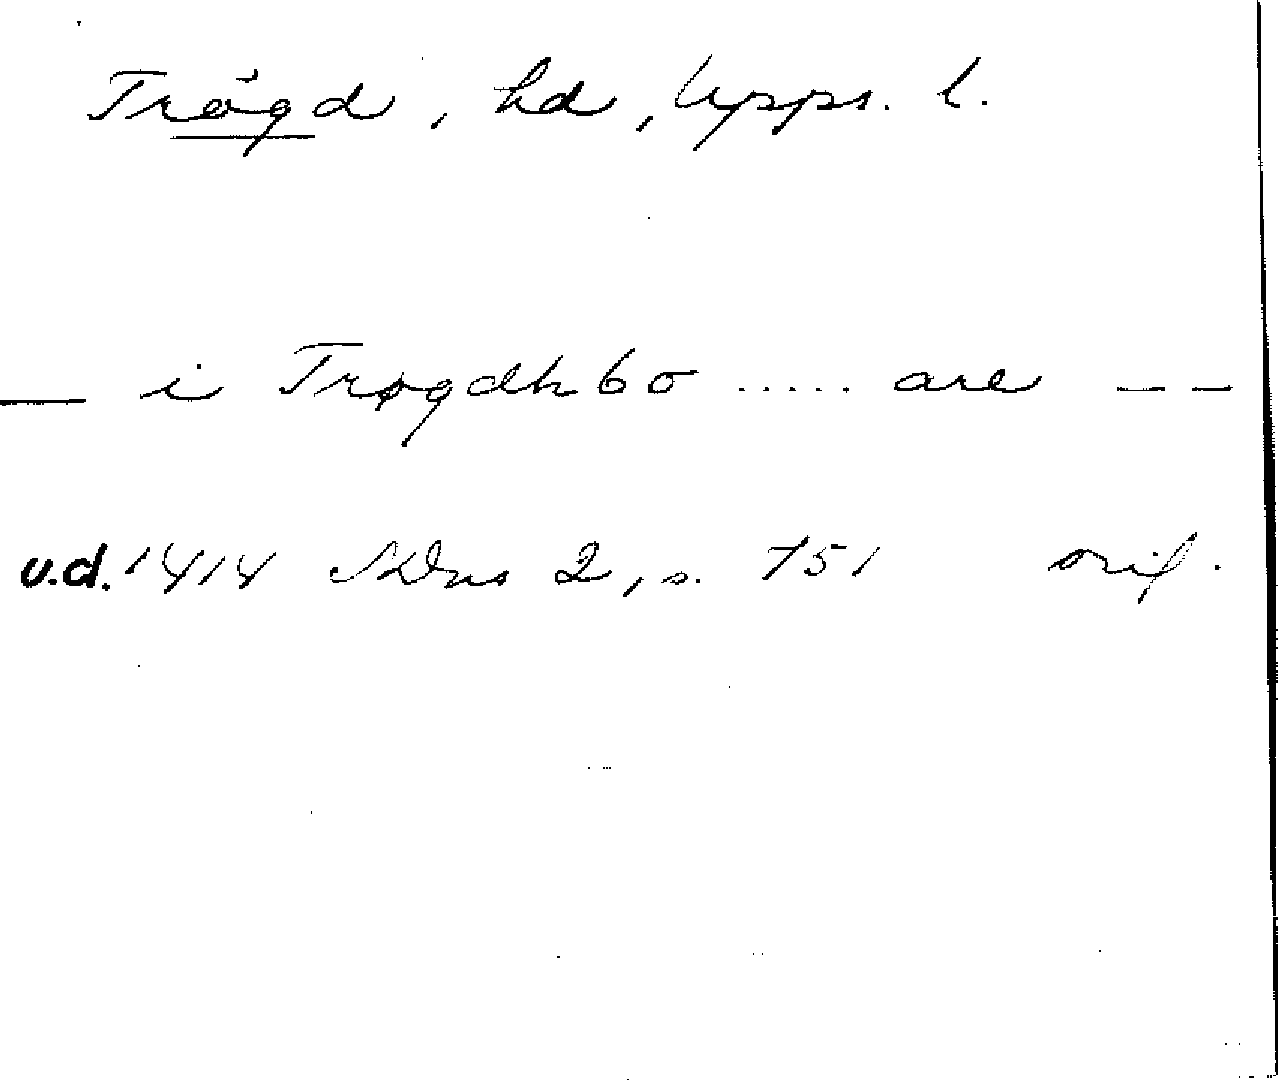 Trögd, hd, Upps. l.
— i Trøgdhbo ..... are — —
u.d. 1414 SDns 2, s. 751 orig.